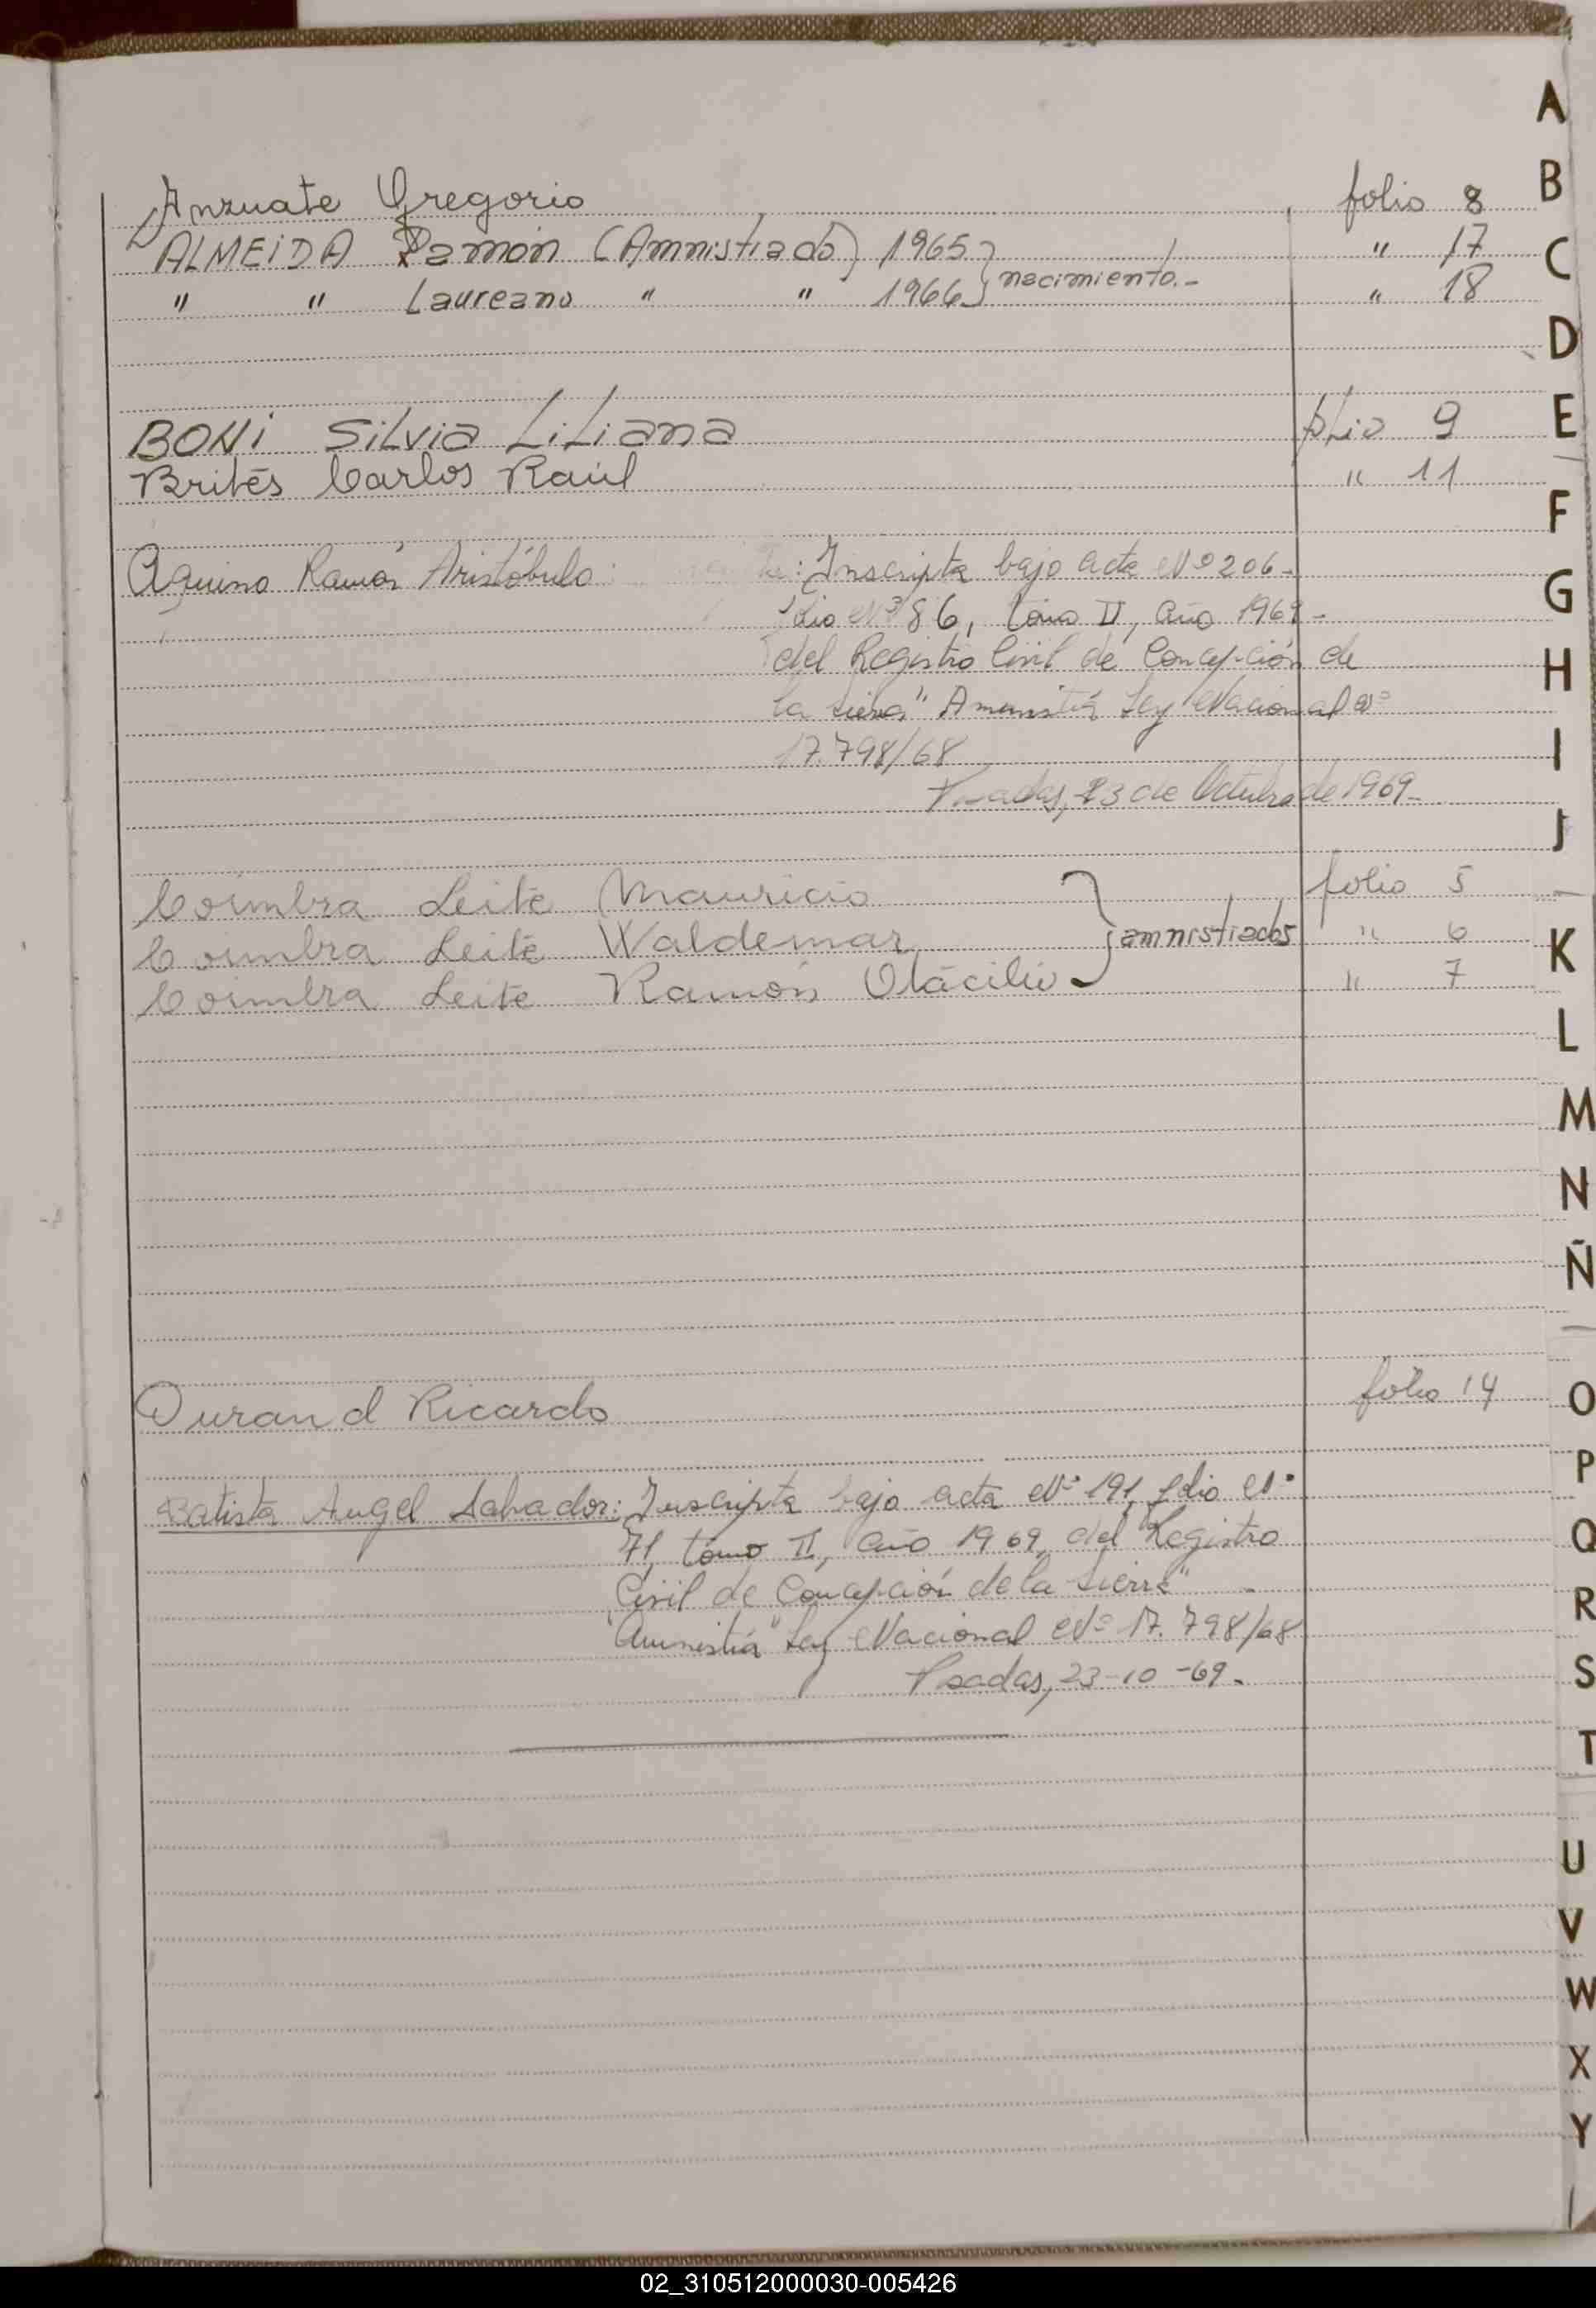 Anzuate Gregorio folio 8
ALMEIDA Ramón (Amnistiado) 1965 } nacimiento.- " 17
" " Laureano " " 1966 " 18
BONi SiLvia LiLiana foLio 9
Brites Carlos Raúl " 11
Aquino Ramón Aristóbulo : Inscripta bajo acta Nº 206-
folio Nº 86, tomo II, año 1969-
del Registro Civil de Concepción de
la Sierra" Amnistía Ley Nacional Nº
17.798/68
Posadas, 23 de Octubre de 1969-
Coimbra Leite Mauricio folio 5
Coimbra Leite Waldemar } amnistiados " 6
Coimbra Leite Ramón Otácilio " 7
Durand Ricardo folio 14
Batista Angel Salvador: Inscripta bajo acta Nº 191, folio Nº
71, tomo II, año 1969, del Registro
Civil de Concepción de la Sierra"
"Amnistía" Ley Nacional Nº 17.798/68
Posadas, 23-10-69.
A
B
C
D
E
F
G
H
I
J
K
L
M
N
Ñ
O
P
Q
R
S
T
U
V
W
X
Y
02_310512000030-005426